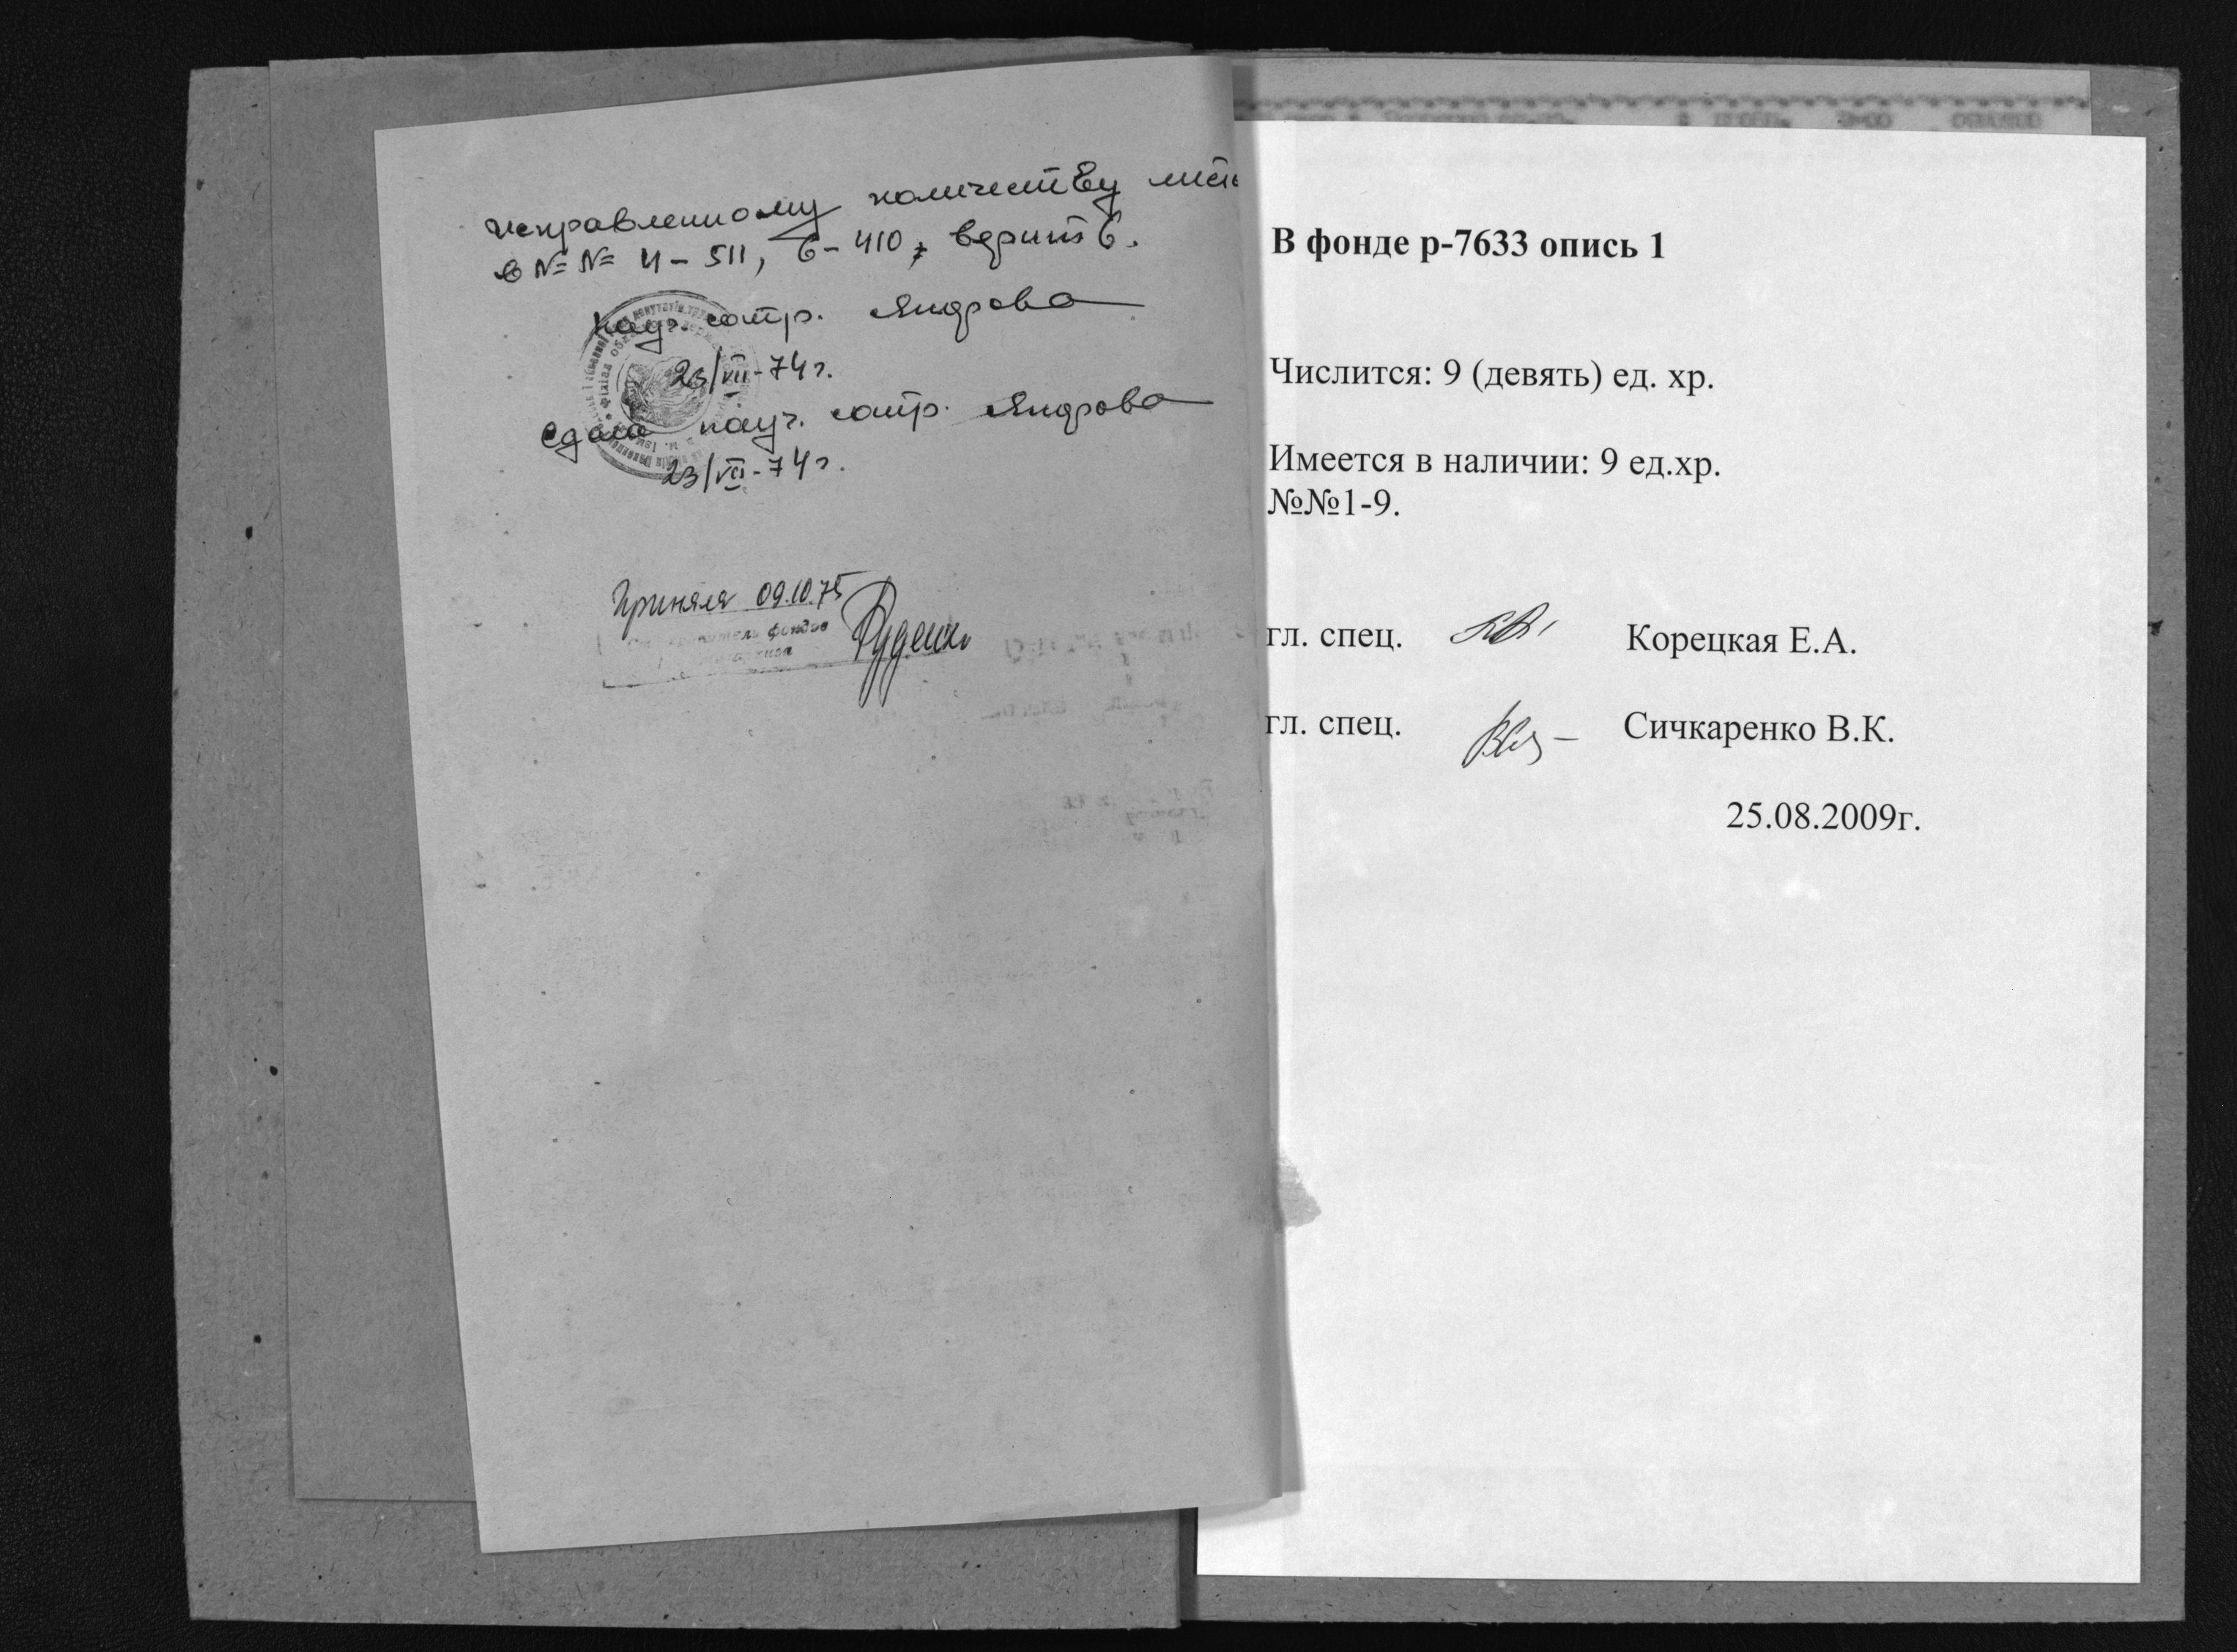 исправленному количеству
в №№ 4-511, 6-410, верить.
науч. сотр.
23/VII-74г.
Сдала науч. сотр.
23/VII-74г.
Приняла 09.10.75
фондов
Руденко
В фонде р-7633 опись 1
Числится: 9 (девять) ед. хр.
Имеется в наличии: 9 ед.хр.
№№1-9.
гл. спец. Корецкая Е.А.
гл. спец. Сичкаренко В.К.
25.08.2009г.